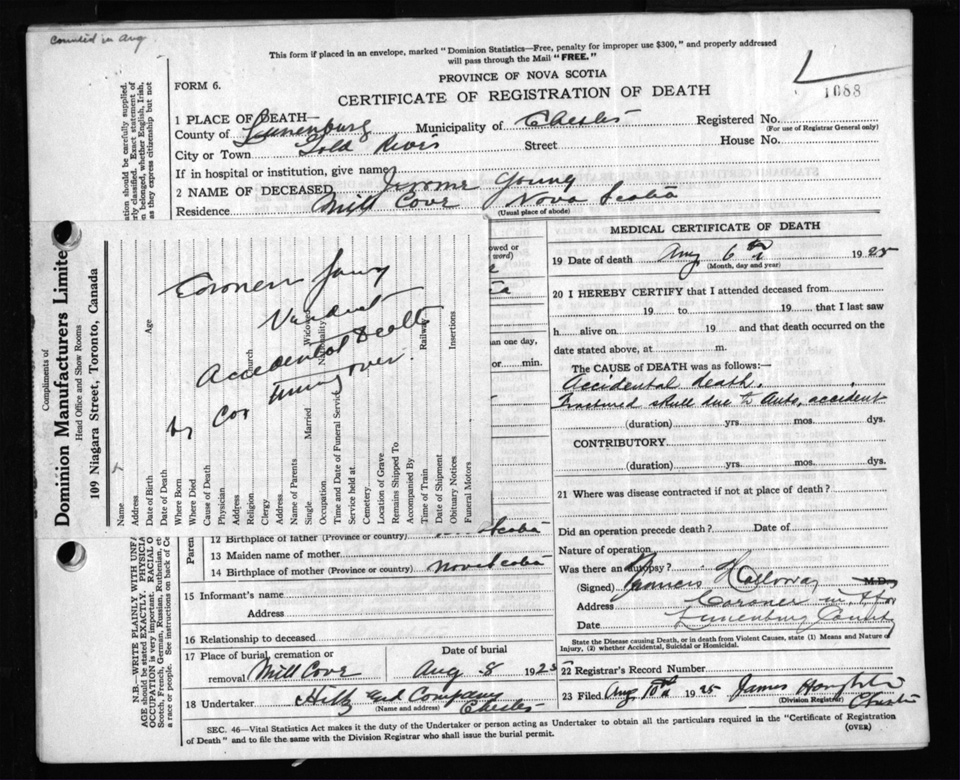 Counted in Aug
This form if placed in an envelope, marked "Dominion Statistics—Free, penalty for improper use $300," and properly addressed
will pass through the Mail "FREE."
PROVINCE OF NOVA SCOTIA
FORM 6.
CERTIFICATE OF REGISTRATION OF DEATH
1088
1 PLACE OF DEATH—
County of Lunenburg Municipality of Chester Registered No.
(For use of Registrar General only)
City or Town Gold River Street House No.
If in hospital or institution, give name
2 NAME OF DECEASED Jerome Young
Residence Mill Cove Nova Scotia
(Usual place of abode)
ation should be carefully supplied.
rly classified. Exact statement of
n belonged, whether English, Irish,
as they express citizenship but not
Compliments of
Dominion Manufacturers Limite
Head Office and Show Rooms
109 Niagara Street, Toronto, Canada
Name
Address
Date of Birth Age
Date of Death
Where Born
Where Died
Cause of Death
Physician
Address
Religion Church
Clergy
Address
Name of Parents
Single Married Widowed
Occupation Nationality
Time and Date of Funeral Service
Service held at
Cemetery
Location of Grave
Remains Shipped To
Accompanied By
Time of Train Railway
Date of Shipment
Obituary Notices Insertions
Funeral Motors
Coroners Jury
Verdict
Accidental Death
by Car Turning over.
owed or
word)
an one day,
or min.
Paren
12 Birthplace of father (Province or country) Scotia
13 Maiden name of mother
14 Birthplace of mother (Province or country) Nova Scotia
15 Informant's name
Address
16 Relationship to deceased
17 Place of burial, cremation or Date of burial
removal Mill Cove Aug 8 1925
18 Undertaker Hiltz and Company
(Name and address) Chester
MEDICAL CERTIFICATE OF DEATH
19 Date of death Aug 6th 1925
(Month, day and year)
20 I HEREBY CERTIFY that I attended deceased from
19 to 19 that I last saw
h alive on 19 and that death occurred on the
date stated above, at m.
The CAUSE of DEATH was as follows:—
Accidental death.
Fractured skull due to Auto, accident
(duration) yrs. mos. dys.
CONTRIBUTORY
(duration) yrs. mos. dys.
21 Where was disease contracted if not at place of death?
Did an operation precede death? Date of
Nature of operation
Was there an autopsy?
(Signed) Francis Holloway M.D.
Address Coroner in &
Date Lunenburg County
State the Disease causing Death, or in death from Violent Causes, state (1) Means and Nature of
Injury, (2) whether Accidental, Suicidal or Homicidal.
22 Registrar's Record Number
23 Filed Aug 10th 1925 James
(Division Registrar) Chester
N.B.—WRITE PLAINLY WITH UNFA
AGE should be stated EXACTLY. PHYSICIA
OCCUPATION is very important. RACIAL O
Scotch, French, German, Russian, Ruthenian, et
a race or people. See instructions on back of Ce
SEC. 46—Vital Statistics Act makes it the duty of the Undertaker or person acting as Undertaker to obtain all the particulars required in the "Certificate of Registration
of Death" and to file the same with the Division Registrar who shall issue the burial permit.
(OVER)